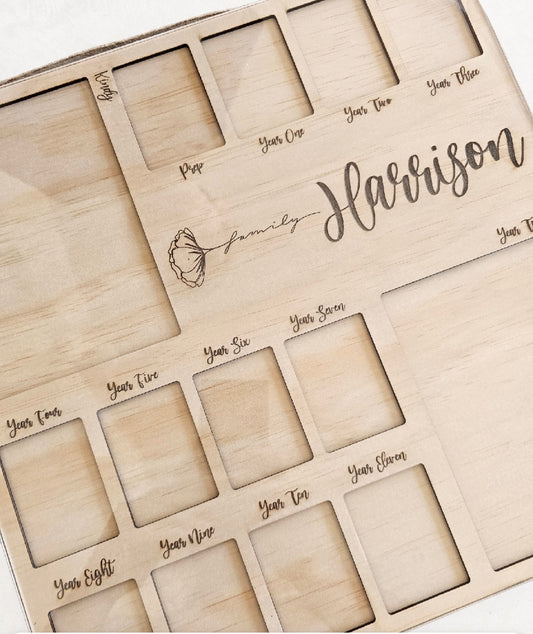 Kindy
Prep
Year One
Year Two
Year Three
family
Harrison
Year Four
Year Five
Year Six
Year Seven
Year Eight
Year Nine
Year Ten
Year Eleven
Year